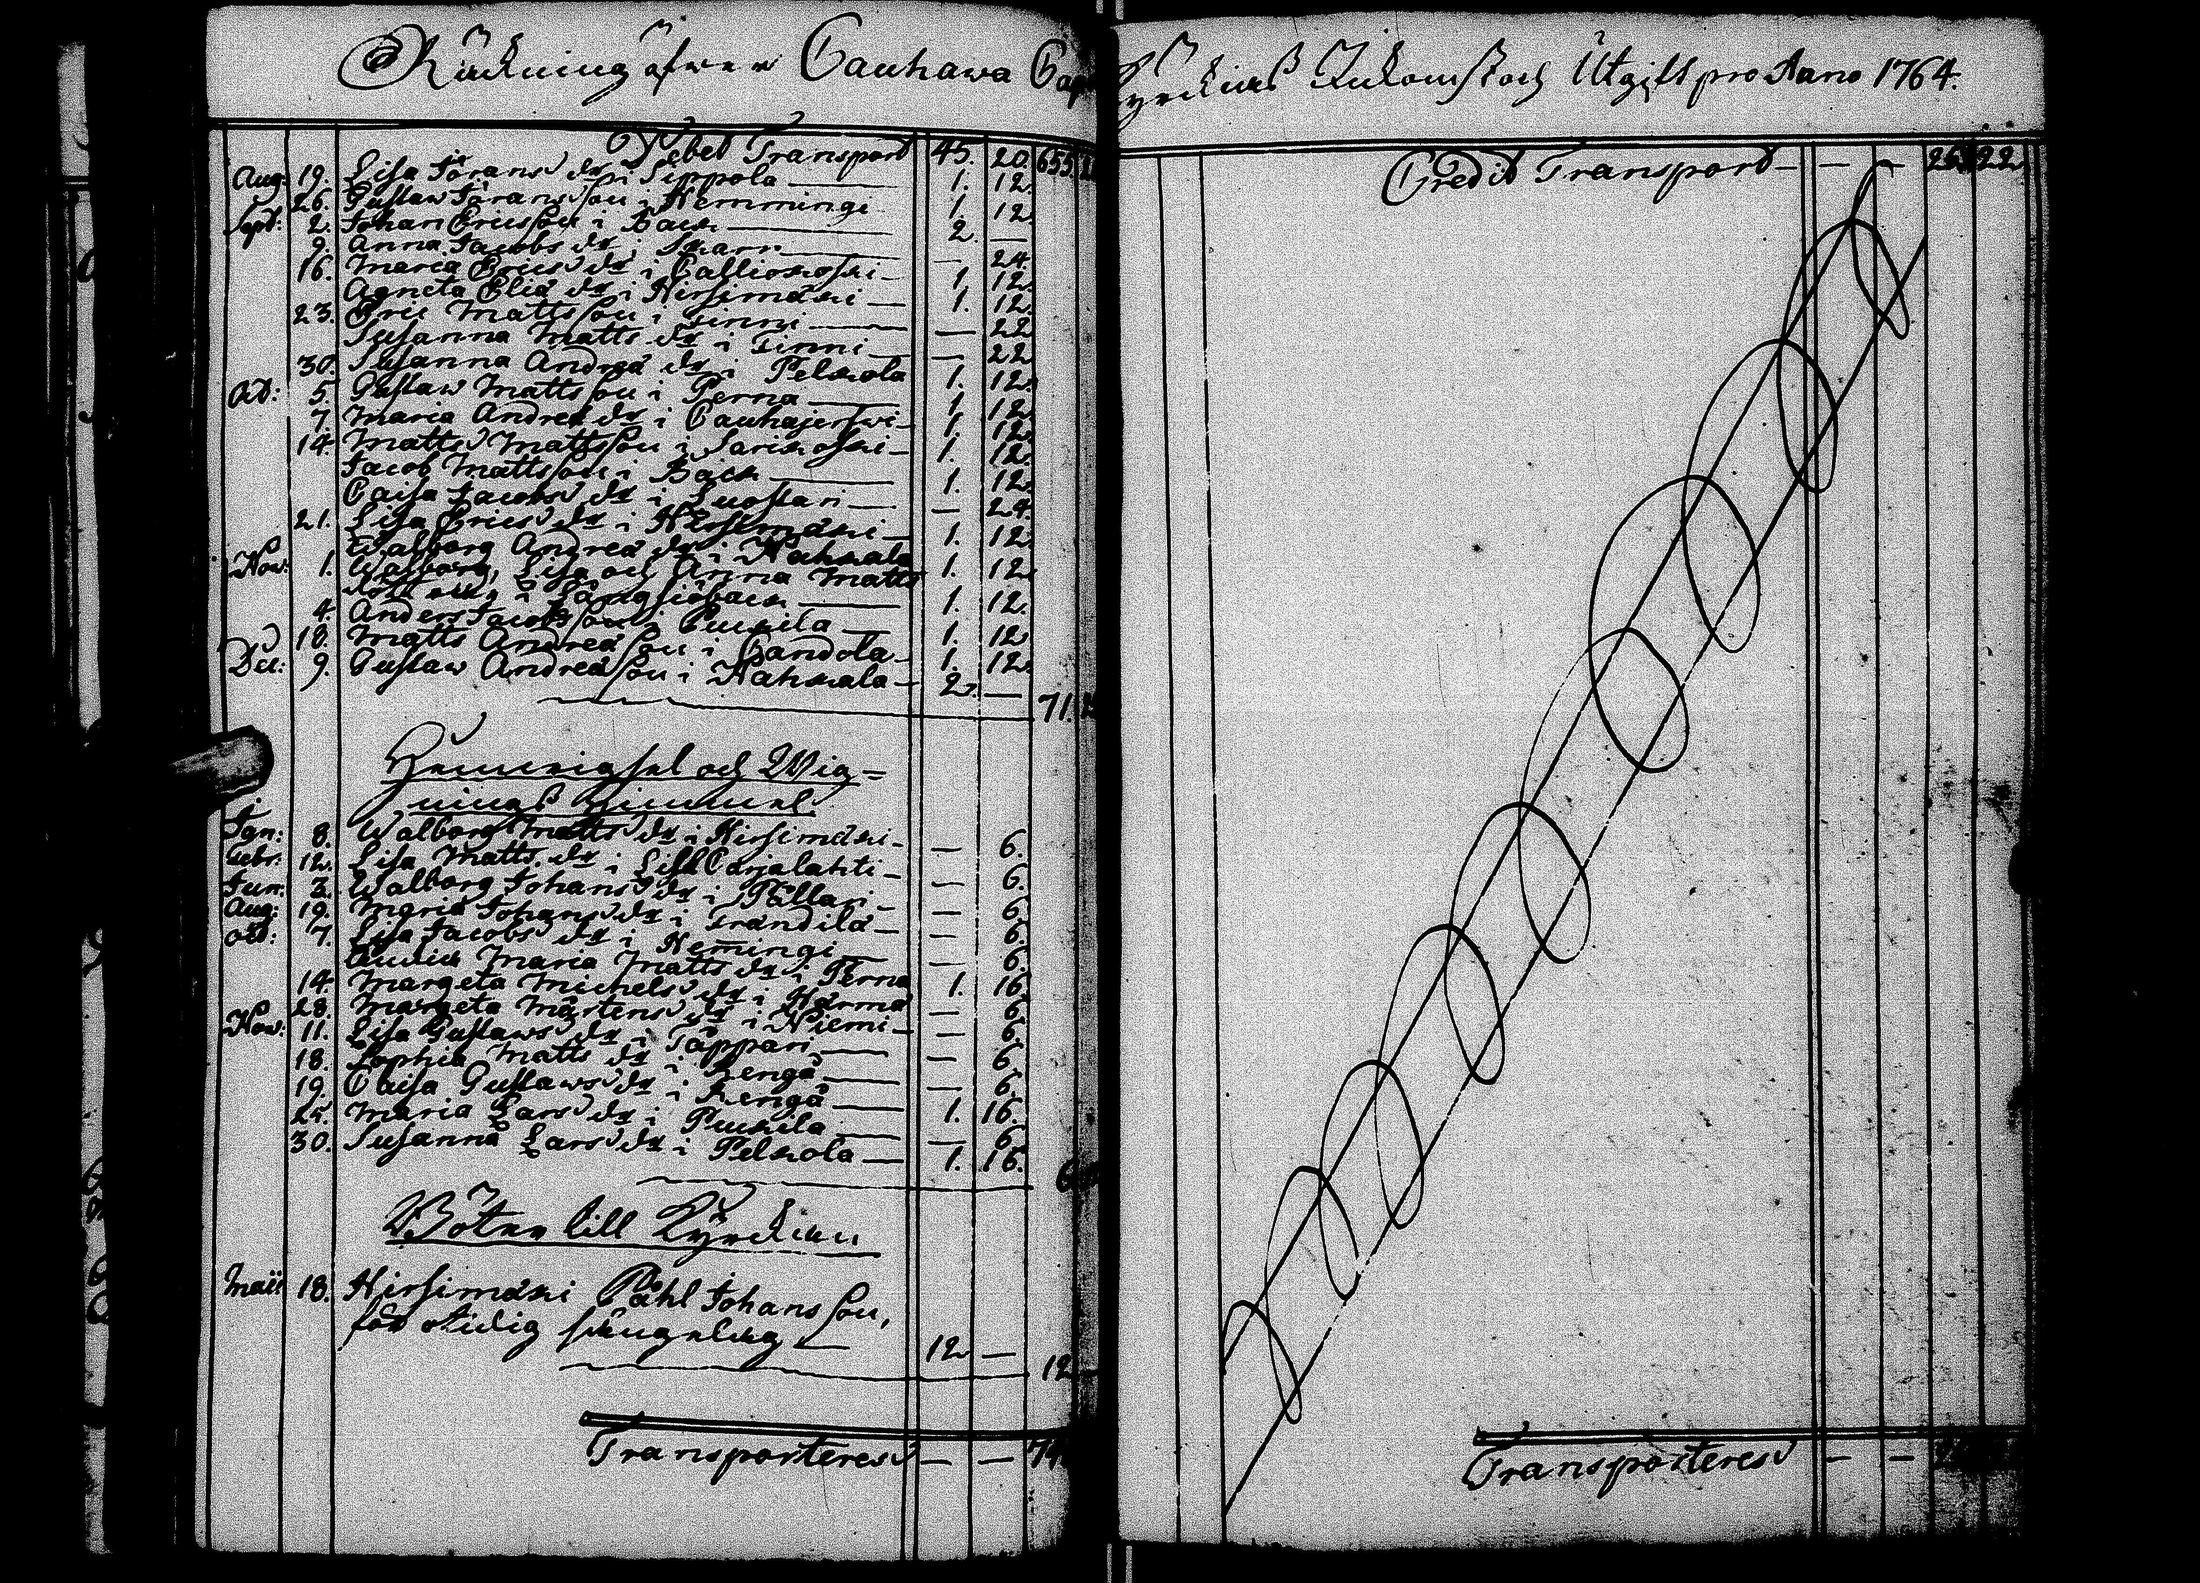 Räckning öfwer Cauhawa Cap
Kyrckias Inkomst och Utgift pro Anno 1764.
Debet Transport 45. 20. 655.
Aug: 19. Lisa Jörans dr i Seppola — 1. 12.
26. Gustaw Jörans Son i Hemmingi 1. 12.
Sept: 2. Johan Ericsson i Back — 2. —
9. Anna Jacobs dr i Skarn — — 24.
16. Maria Erics dr i Calliokoski — 1. 12.
Agneta Eliæ dr i Hirsimäki — 1. 12.
23. Eric Mattsson i Finni — — 22
Susanna Matts dr i Finni — — 22
30. Susanna Andreæ dr i Pelkola 1. 12.
Oct: 5. Gustaw Mattsson i Perna — 1. 12.
7. Maria Andreæ dr i Cauhajerfwi — 1. 12.
14. Matts Mattsson i Sarikoski — 1. 12.
Jacob Mattsson i Back — 1. 12.
Caisa Jacobs dr i Luostari — — 24.
21. Lisa Erics dr i Hirsimäki — 1. 12.
Walborg Andreæ dr i Kahkala 1. 12.
Now: 1. Walborg, Lisa och Anna Matts
döttrar i Långsiöback — 1. 12.
4. Anders Jacobsson i Puckila — 1. 12.
18. Matts Andreæ Son i Candola — 1. 12.
Dec: 9. Gustaw Andreæ Son i Kahkala — 2. —
71.
Hemmigsel och Wig=
nings Himmel
Jan: 8. Walborg Matts dr i Hirsimäki — — 6.
Febr: 12. Lisa Matts dr i Lill Carjalahti — — 6.
Jun: 3. Walborg Johans dr i Pällari — — 6.
Aug: 19. Maria Johans dr i Trandila — — 6.
Oct: 7. Lisa Jacobs dr i Hemingi — — 6.
Maria Matts dr i Perna 1. 16.
14. Margeta Michels dr i Härmä — 6.
28. Margeta Mårtens dr i Niemi — — 6.
Now: 11. Lisa Gustaws dr i Pappari — — 6.
18. Sophia Matts dr i Rengå — — 6.
19. Caisa Gustaws dr i Rengå — 1. 16.
25. Maria Lars dr i Puckila — — 6.
30. Susanna Lars dr i Pelkola — 1. 16.
Böter till Kyrckian
Maii 18. Hirsimäki Påhl Johans Son,
för otidig sängelag — 12. —
12 —
Transporteres — —
Credit Transport — — — 22.
Transporteres — —